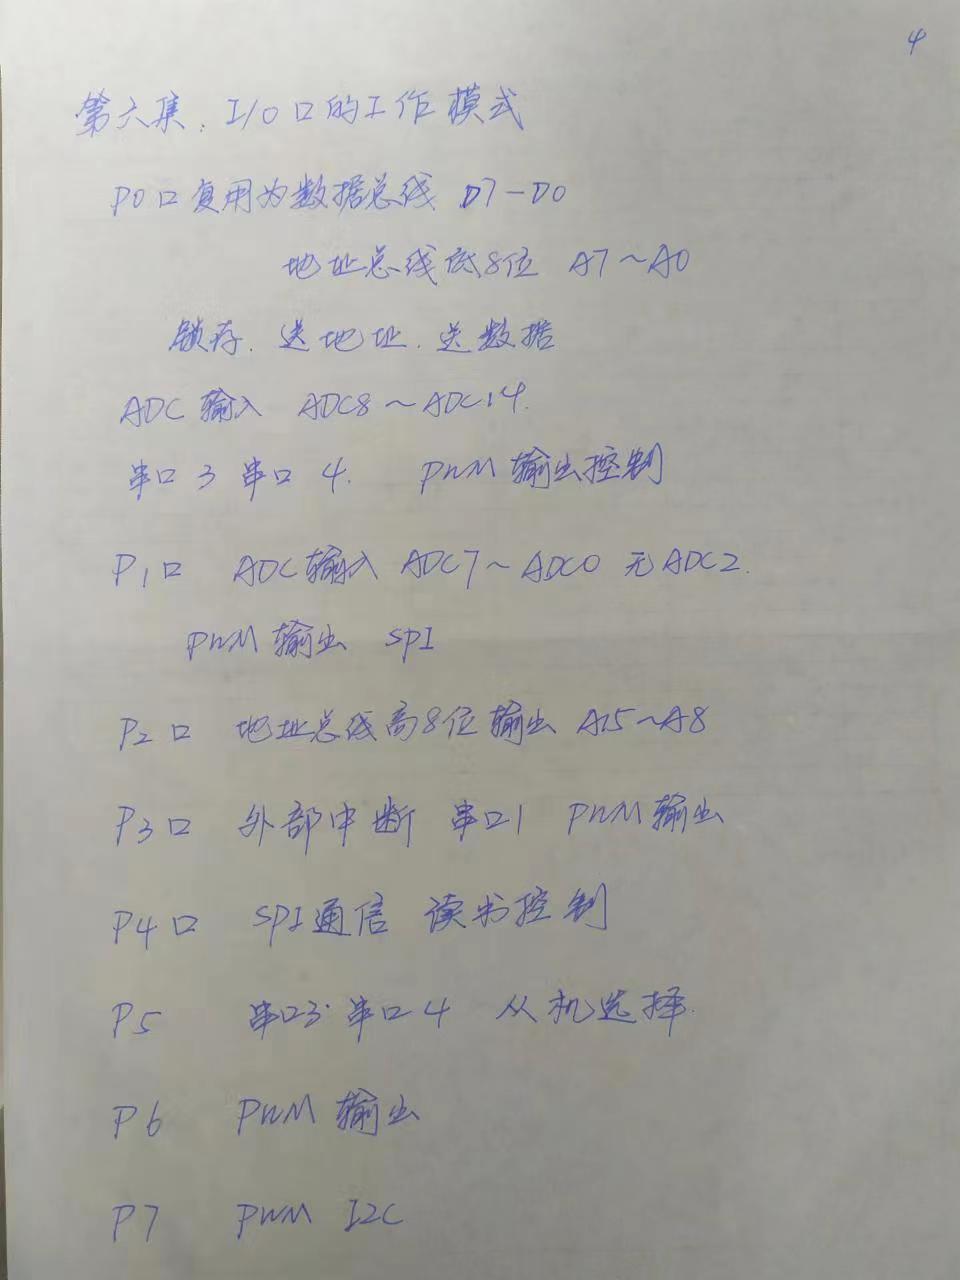 4
第六集: I/O口的工作模式
P0口复用为数据总线 D7-D0
地址总线低8位 A7~A0
锁存. 送地址. 送数据
ADC 输入 ADC8~ADC14.
串口3 串口4. PWM输出控制
P1口 ADC输入 ADC7~ADC0 无ADC2.
PWM输出 SPI
P2口 地址总线高8位输出 A15~A8
P3口 外部中断 串口1 PWM输出
P4口 SPI通信 读书控制
P5 串口3 串口4 从机选择.
P6 PWM 输出
P7 PWM I2C